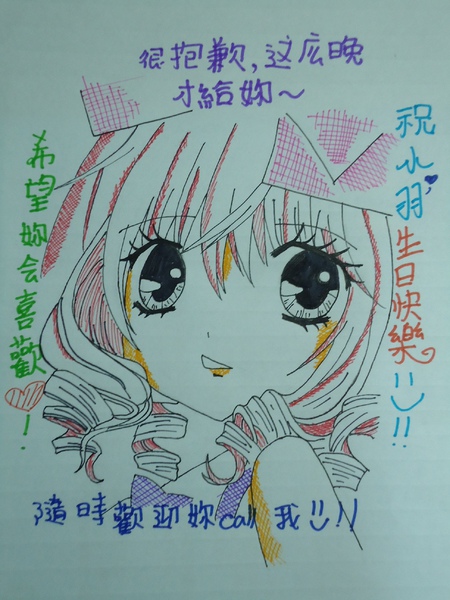 很抱歉,这么晚
才給妳～
祝水羽生日快樂!!
希望妳会喜歡!
隨時歡迎妳call我!!